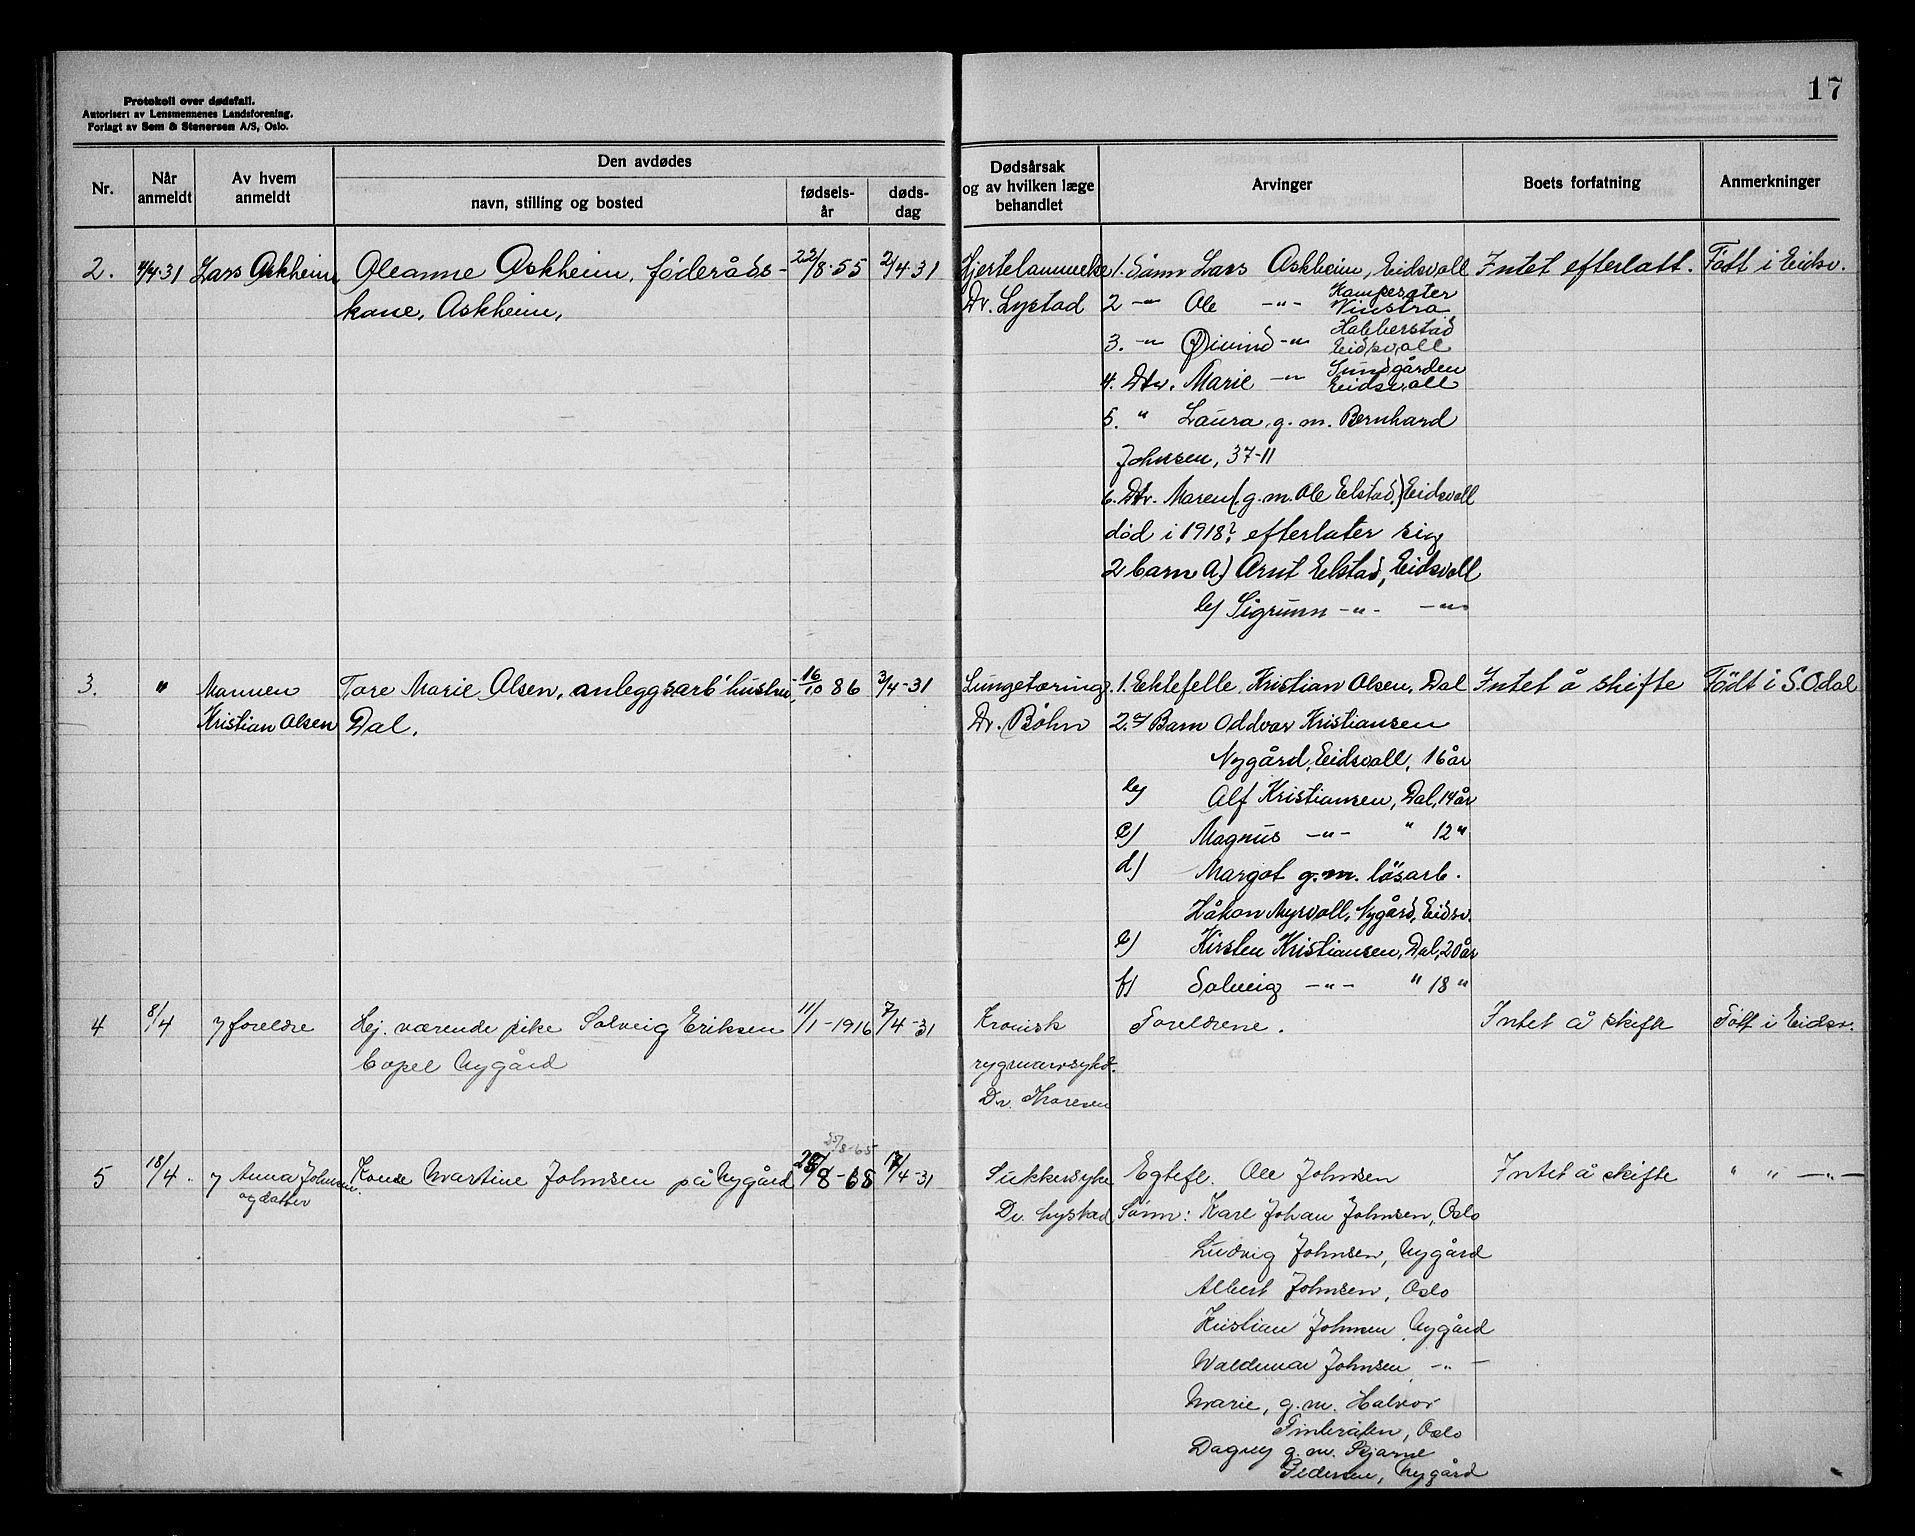 17
Protokoll over dødsfall.
Autorisert av Lensmennenes Landsforening.
Forlagt av Sem & Stenersen A/S, Oslo.
Nr.
Når anmeldt
Av hvem anmeldt
Den avdødes
navn, stilling og bosted
fødsels-år
døds-dag
Dødsårsak og av hvilken læge behandlet
Arvinger
Boets forfatning
Anmerkninger
2. 4/4-31 Lars Askheim Oleanne Askheim, føderåds- 22/8-55 2/4-31
kone, Askheim,
Hjertelammelse 1. Sønn Lars Askheim, Eidsvoll Intet efterlatt. Født i Eidsv.
Dr. Lystad 2 -"- Ole -"- Kampesæter Vinstra
3. -"- Øivind -"- Habberstad Eidsvoll
4. Dtr. Marie -"- Sundgården Eidsvoll
5. " Laura g. m. Bernhard
Johnsen, 37-11
6. Dtr. Maren (g.m. Ole Elstad,) Eidsvoll
død i 1918?, efterlater sig
2 barn A) Arnt Elstad, Eidsvoll
b) Sigrunn -"- -"-
3. " Mannen Tore Marie Olsen, anleggsarb' hustru, 16/10 86 3/4-31
Kristian Olsen Dal.
Lungetæring 1. Ektefelle, Kristian Olsen, Dal Intet å skifte Født i S. Odal
Dr. Bøhn 2. a) Barn Oddvar Kristiansen
Nygård, Eidsvoll, 16 år
b) Alf Kristiansen, Dal, 14 år
c) Magnus -"- " 12 "
d) Margot g.m. løsarb.
Håkon Myrvoll, Nygård, Eidsv.
e) Kirsten Kristiansen, Dal, 20 år
f) Solveig -"- " 18 "
4 8/4 foreldre Hj. værende pike Solveig Eriksen 11/1-1916 7/4-31
Nygård
Kronisk Foreldrene. Intet å skifte Født i Eidsv.
rygmarvsykd.
Dr. Thoresen
25/8-65
5 18/4. Anna Johnsen Kone Martine Johnsen på Nygård 25/8-65 7/4-31
og datter
Sukkersyke Egtefl. Ole Johnsen Intet å skifte " " -"-
Dr. Lystad Sønn: Karl Johan Johnsen, Oslo
Ludvig Johnsen, Nygård
Albert Johnsen, Oslo
Kristian Johnsen, Nygård
Waldemar Johnsen, -"-
Marie, g.m. Halvor
Oslo
Dagny g.m. Bjarne
Pedersen, Nygård